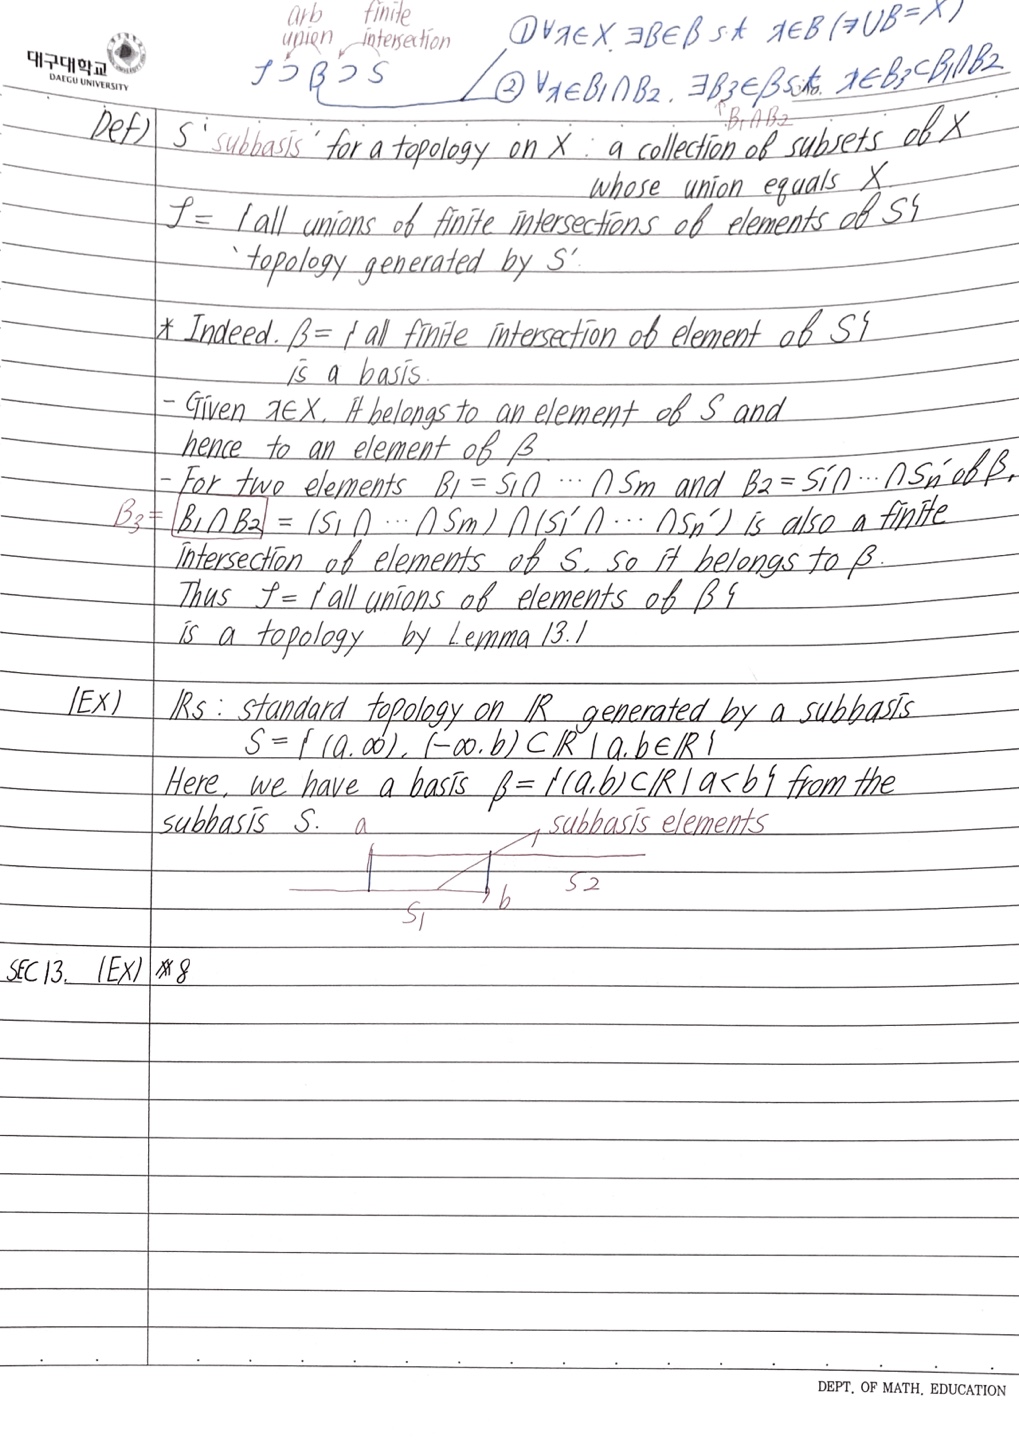 대구대학교
DAEGU UNIVERSITY
arb union
finite intersection
𝒯 ⊃ β ⊃ S
① ∀x∈X. ∃B∈β s.t x∈B (⇒ ∪B = X)
② ∀x∈B1∩B2. ∃B3∈β s.t. x∈B3⊂B1∩B2
B1∩B2
Def) S 'subbasis' for a topology on X : a collection of subsets of X
whose union equals X
𝒯 = { all unions of finite intersections of elements of S }
'topology generated by S'.
* Indeed. β = { all finite intersection of element of S }
is a basis.
- Given x∈X. it belongs to an element of S and
hence to an element of β
- For two elements B1 = S1∩ ··· ∩Sm and B2 = S1'∩ ··· ∩Sn' of β.
B3 = B1∩B2 = (S1∩ ··· ∩Sm) ∩ (S1'∩ ··· ∩Sn') is also a finite
intersection of elements of S. so it belongs to β.
Thus 𝒯 = { all unions of elements of β }
is a topology by Lemma 13.1
(EX) ℝs : standard topology on ℝ generated by a subbasis
S = { (a.∞). (-∞.b) ⊂ ℝ | a.b∈ℝ }
Here, we have a basis β = {(a.b)⊂ℝ | a<b} from the
subbasis S.
a
subbasis elements
S2
b
S1
SEC 13. (EX) #8
DEPT. OF MATH. EDUCATION